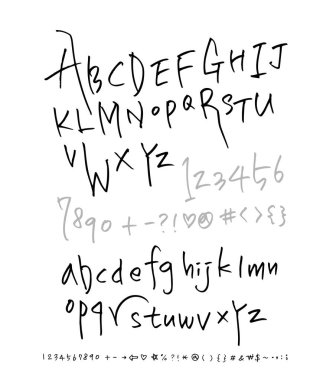 ABCDEFGHIJ
KLMNOPQRSTU
VWXYZ 123456
7890 + - ? ! ♡ @ # < > { }
abcdefghijklmn
opqrstuvwxyz
1234567890 + - → ⇦ ♡ ✿ % ? ! * @ ( ) { } # & ₩ $ ~ - • : ;